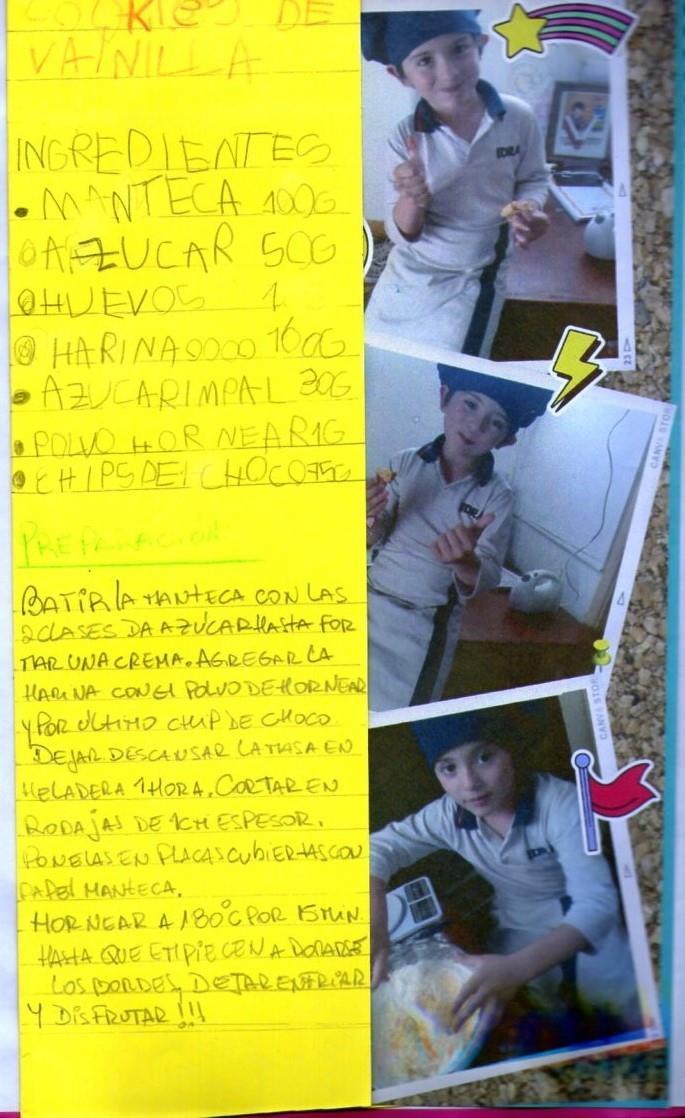 COOKIES DE
VAINILLA
INGREDIENTES
• MANTECA 100G
AZUCAR 50G
HUEVOS 1
HARINA 0000 160G
• AZUCARIMPAL 30G
• POLVO HORNEAR 1G
• CHIPS DE CHOCO 75G
PREPARACIÓN
BATIR LA MANTECA CON LAS
2 CLASES DA AZÚCAR HASTA FOR
MAR UNA CREMA. AGREGAR LA
HARINA CON EL POLVO DE HORNEAR
Y POR ÚLTIMO CHIP DE CHOCO.
DEJAR DESCANSAR LA MASA EN
HELADERA 1 HORA. CORTAR EN
RODAJAS DE 1CM ESPESOR.
PONELAS EN PLACAS CUBIERTAS CON
PAPEL MANTECA.
HORNEAR A 180°C POR 15 MIN
HASTA QUE EMPIECEN A DORARSE
LOS BORDES, DEJAR ENFRIAR
Y DISFRUTAR!!!
IDRA
23
CANVA STOR
IDRA
CANVA STOR
IDRA